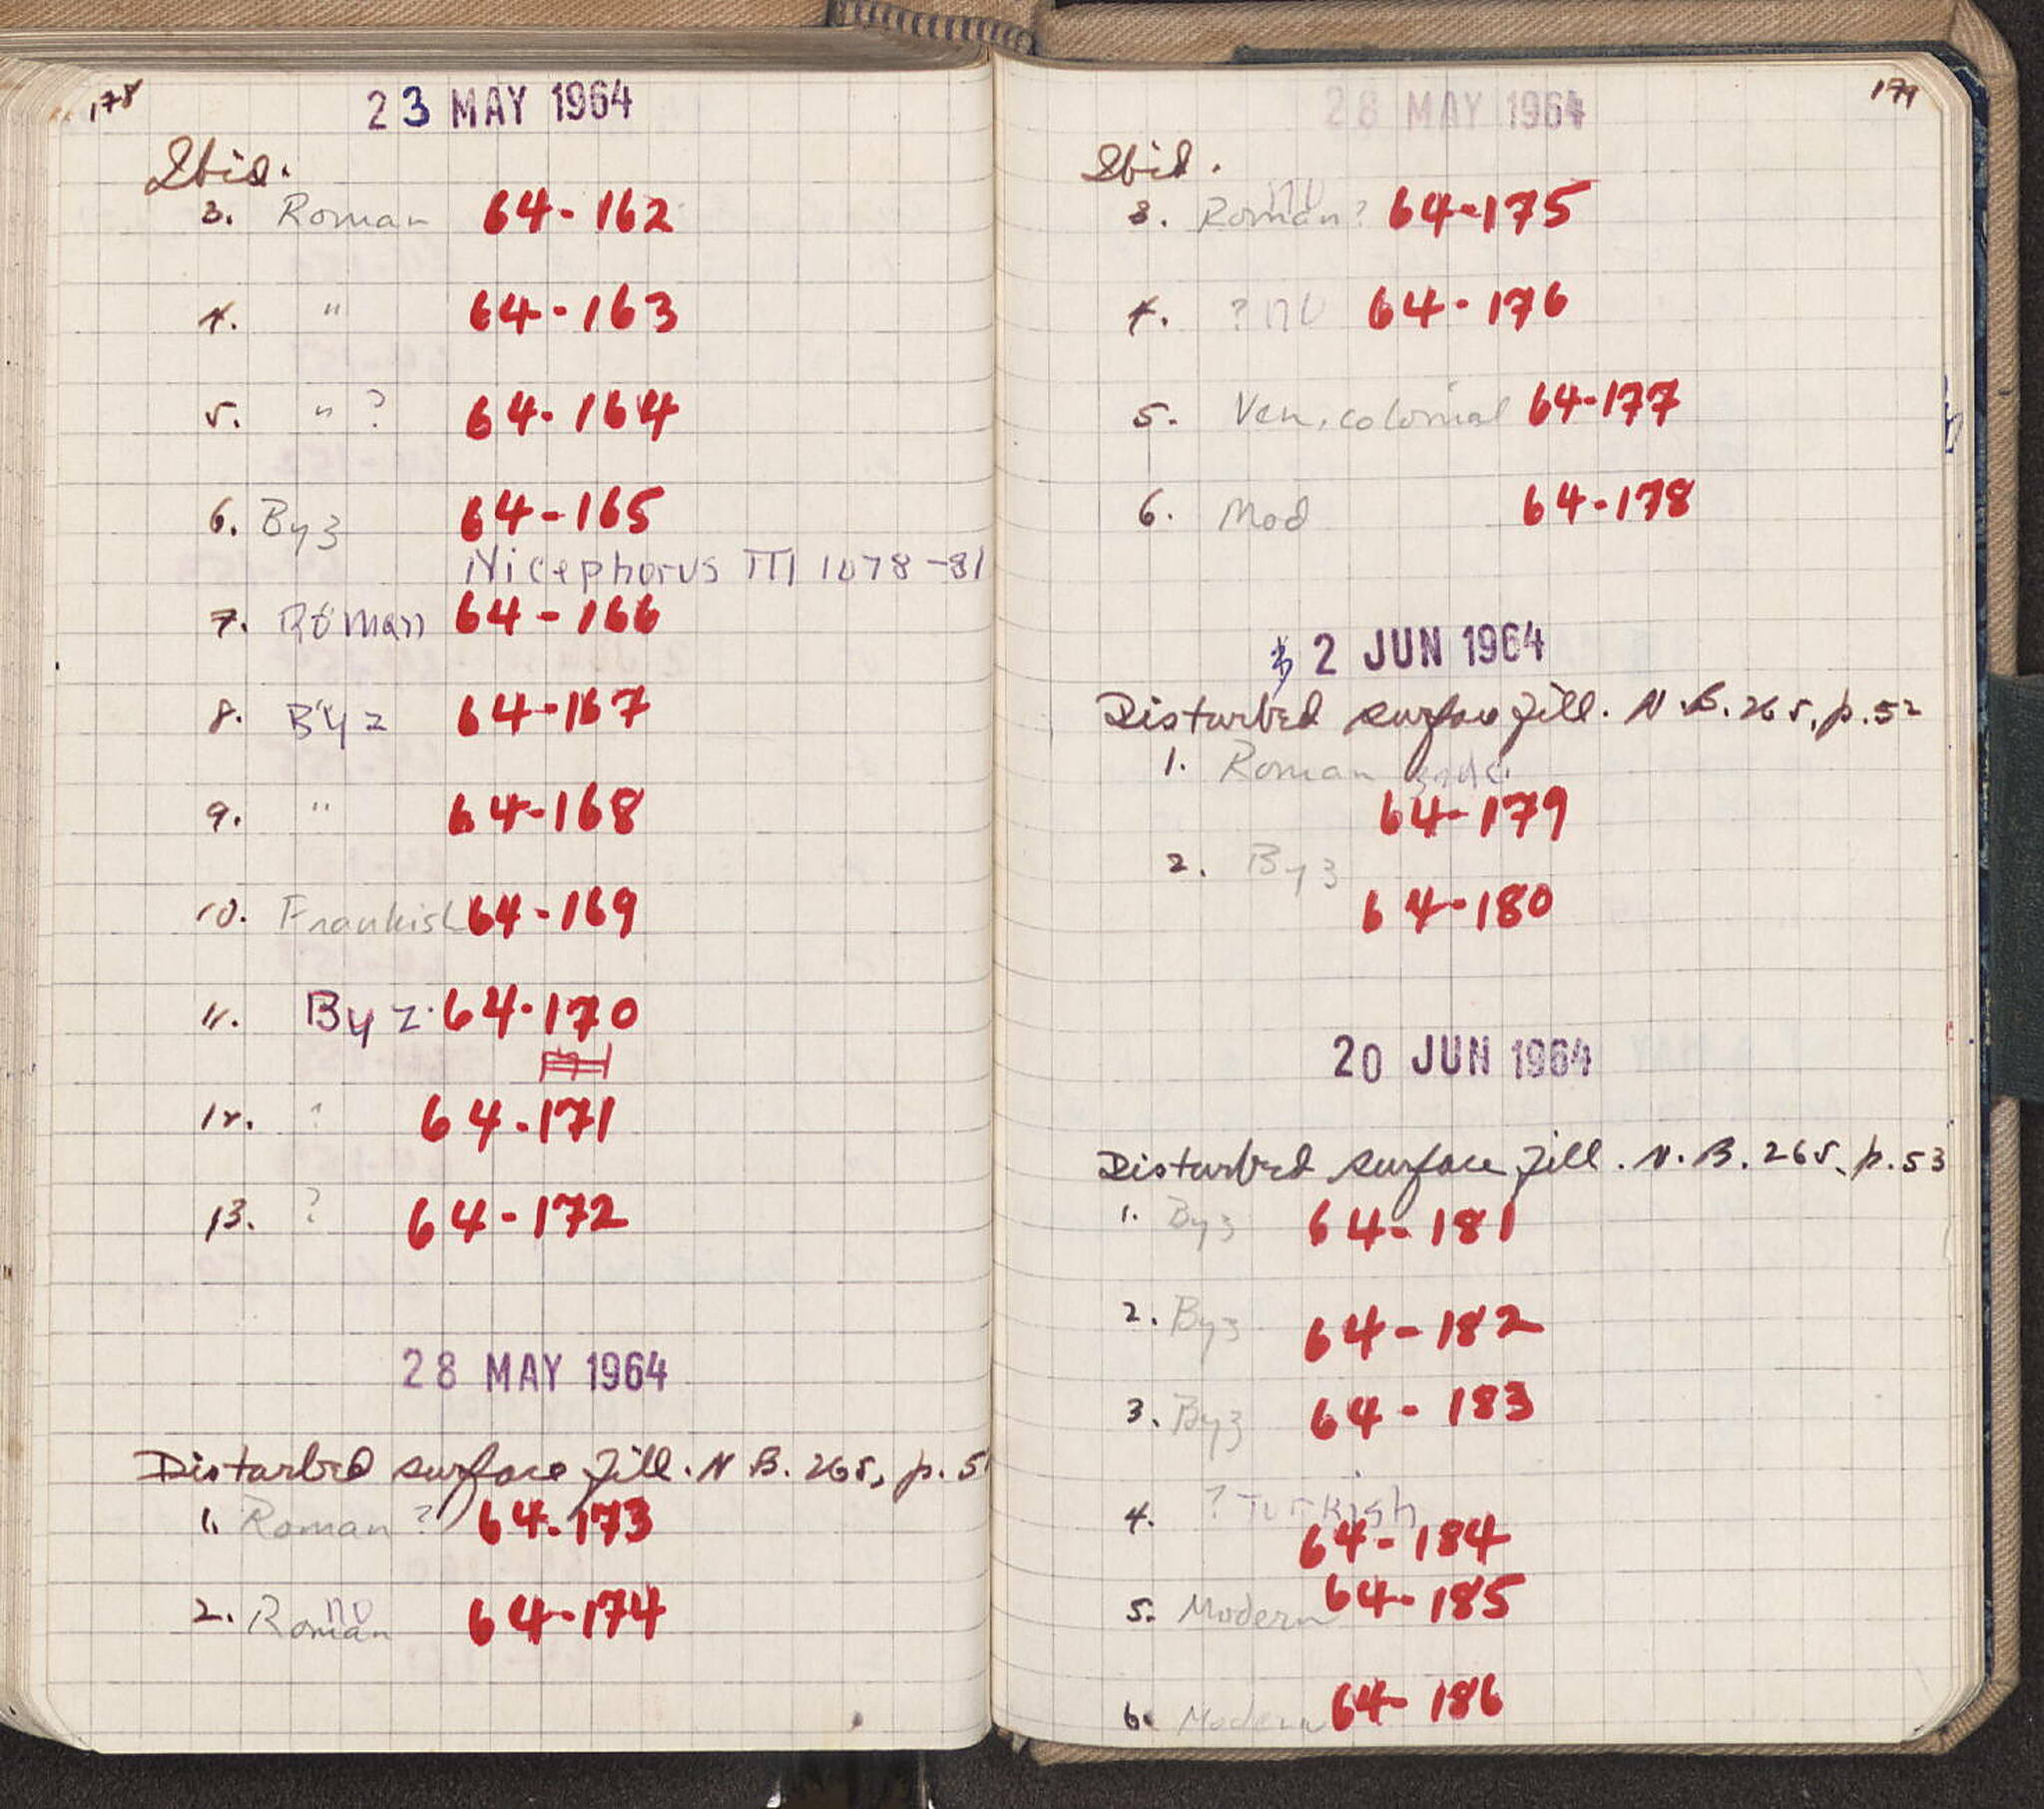 178
23 MAY 1964
Ibid.
3. Roman 64-162
4. " 64-163
5. " ? 64-164
6. Byz 64-165
Nicephorus III 1078-81
7. Roman 64-166
8. Byz 64-167
9. " 64-168
10. Frankish 64-169
11. Byz. 64-170
12. " 64-171
13. ? 64-172
28 MAY 1964
Disturbed surface fill. N B. 265, p. 51
1. Roman ? 64-173
no
2. Roman 64-174
179
28 MAY 1964
Ibid.
no
3. Roman? 64-175
4. ? no 64-176
5. Ven. colonial 64-177
6. Mod 64-178
2 JUN 1964
Disturbed surface fill. N.B. 265, p. 52
1. Roman
64-179
2. Byz
64-180
20 JUN 1964
Disturbed surface fill. N.B. 265, p. 53
1. Byz 64-181
2. Byz 64-182
3. Byz 64-183
4. ? Turkish
64-184
5. Modern 64-185
6. Modern 64-186